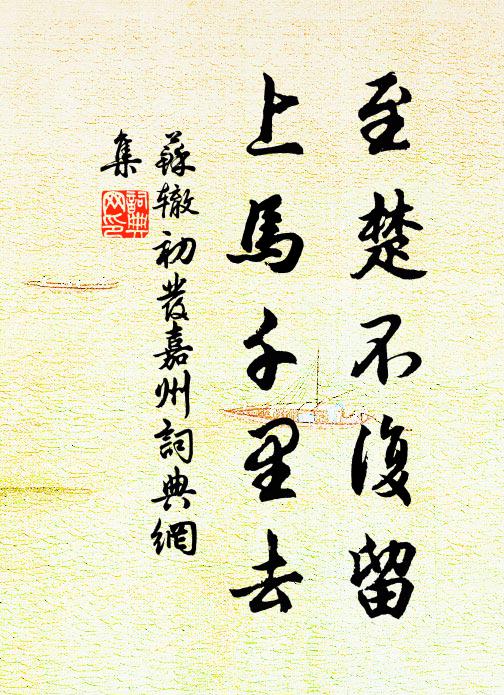 至楚不復留
上馬千里去
蘇辙初發嘉州詞典網
集
詞典
网印